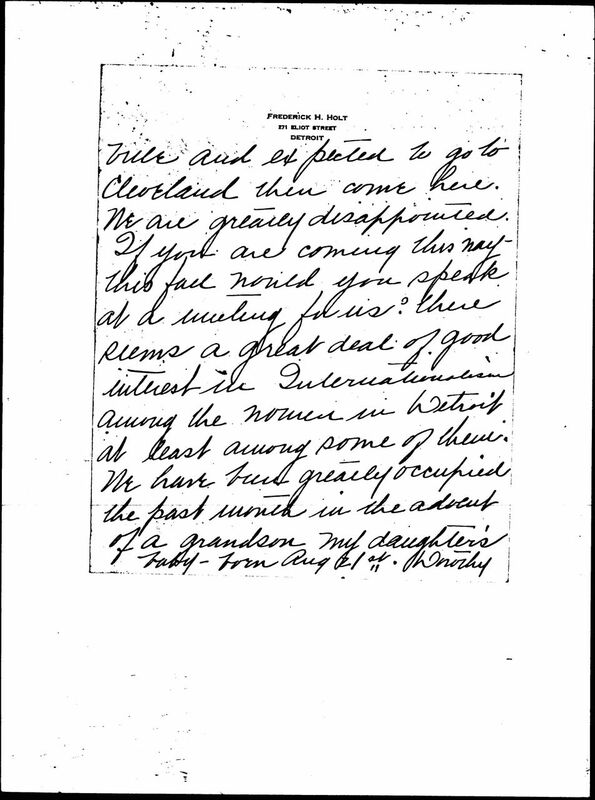 FREDERICK H. HOLT
271 ELIOT STREET
DETROIT
and expected to go to
Cleveland then come here.
We are greatly disappointed.
If you are coming this way
this fall would you speak
at a meeting for us? There
seems a great deal of good
interest in Internationalism
among the women in Detroit
at least among some of them.
We have been greatly occupied
the past month in the advent
of a grandson my daughter's
baby - born Aug 21st. Dorothy